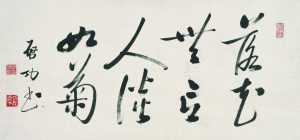 落花
無言
人澹
如菊
啓功書